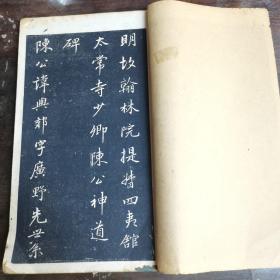 明故翰林院提督四夷館
太常寺少卿陳公神道
碑
陳公諱與郊字廣野先世系